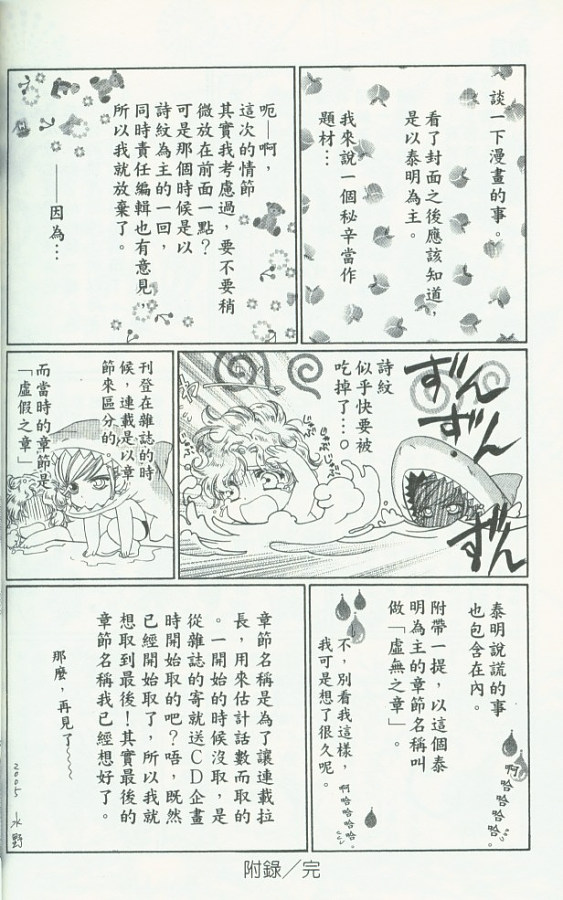 談一下漫畫的事。
看了封面之後應該知道，
是以泰明為主。
我來說一個秘辛當作
題材…
呃—啊，
這次的情節
其實我考慮過，要不要稍
微放在前面一點？
可是那個時候是以
詩紋為主的一回，
同時責任編輯也有意見，
所以我就放棄了。
——因為…
ずんずん
ずん
詩紋
似乎快要被
吃掉了…。
じゃぶ
じゃぶ
じゃぶ
刊登在雜誌的時
候，連載是以章
節來區分的。
而當時的章節是
「虛假之章」
泰明說謊的事
也包含在內。
附帶一提，以這個泰
明為主的章節名稱叫
做「虛無之章」。
啊哈哈哈哈。
不，別看我這樣，
我可是想了很久呢。
啊哈哈哈哈。
章節名稱是為了讓連載拉
長，用來估計話數而取的
。一開始的時候沒取，是
從雜誌的寄就送CD企畫
時開始取的吧？唔，既然
已經開始取了，所以我就
想取到最後！其實最後的
章節名稱我已經想好了。
那麼，再見了～～～
2005 水野
附錄／完